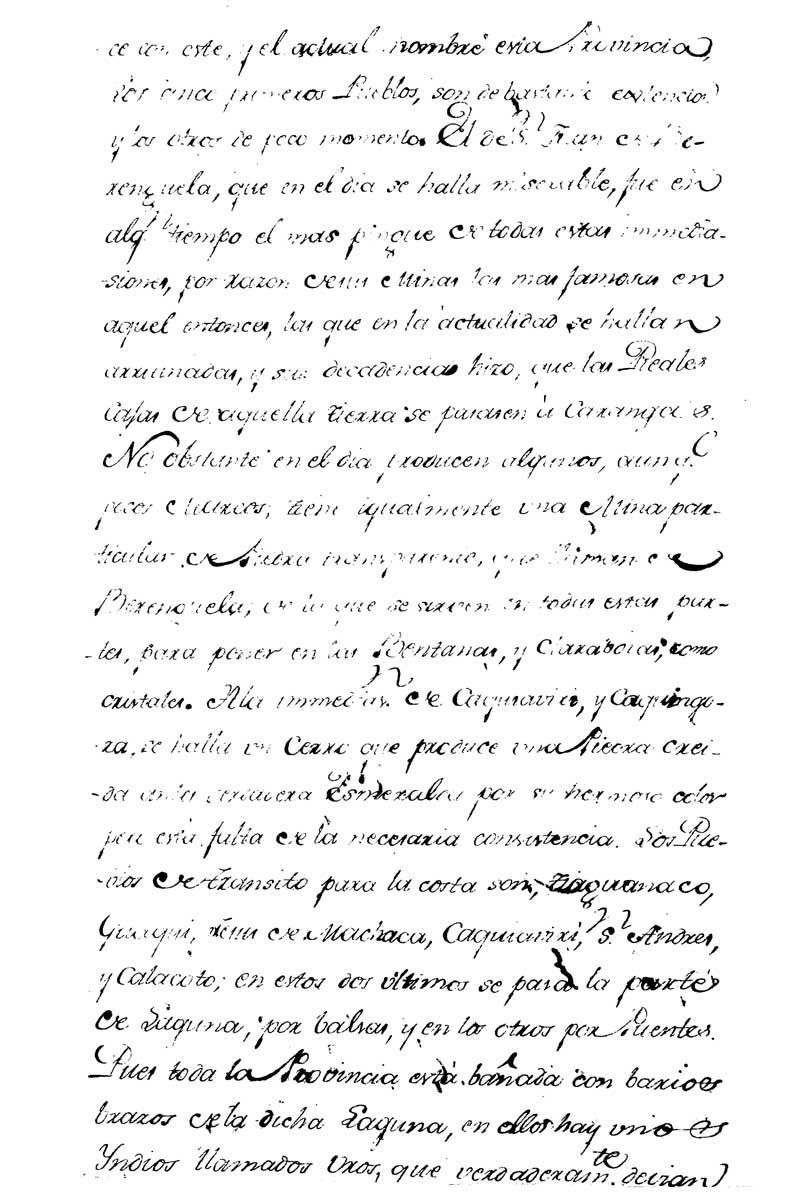 ce con este, y el actual nombre esta Provincia,
los cinco primeros Pueblos, son de bastante extencion
y los otros de poco momento. El de S.n Juan de Be-
renguela, que en el dia se halla miserable, fue en
alg.n tiempo el mas pingue de todas estas immedia-
siones, por razon de sus Minas las mas famosas en
aquel entonces, las que en la actualidad se hallan
arruinadas, y su decadencia hizo, que las Reales
Cajas de aquella tierra se pasasen à Carangas.
No obstante en el dia producen algunos, aunq.e
pocos Marcos; tiene igualmente una Mina par-
ticular de Piedra transparente, que llaman de
Berenguela, de la que se sirven en todas estas par-
tes, para poner en las Bentanas, y Claraboias, como
cristales. A la immedias.n de Caquiaviri, y Caquingo-
ra, se halla un Cerro que produce una Piedra crei-
da en la verdadera Esmeralda por su hermoso color
pero esta falta de la necesaria consistencia. Los Pue-
blos de transito para la costa son, Tiaguanaco,
Guaqui, Jesus de Machaca, Caquiaviri, S.n Andres,
y Calacoto; en estos dos últimos se pasa la parte
de Laguna, por balsas, y en los otros por Puentes.
Pues toda la Provincia está bañada con barios
brazos de la dicha Laguna, en ellos hay unos
Yndios llamados Uros, que verdaderam.te devian